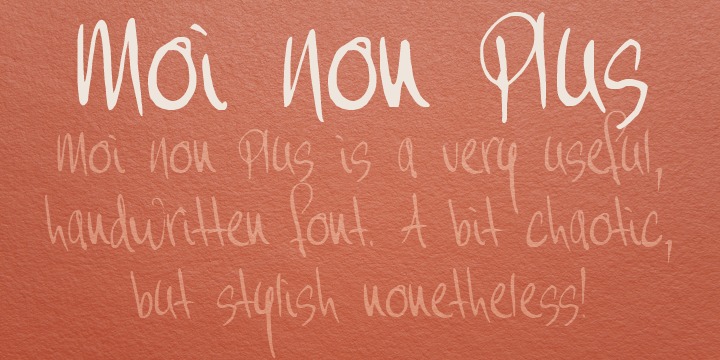 Moi non Plus
Moi non Plus is a very useful,
handwritten font. A bit chaotic,
but stylish nonetheless!